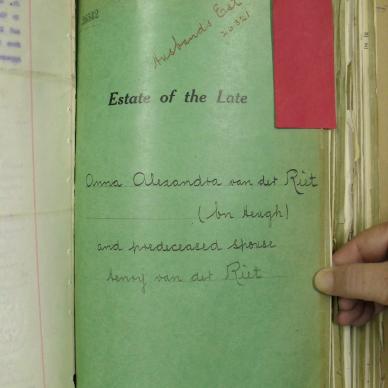 Husbands Est
20321
Estate of the Late
Anna Alexandra van der Riet
(bn Heugh)
and predeceased spouse
Henry van der Riet